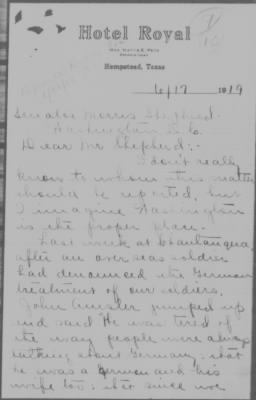 Hotel Royal
Hempstead, Texas
6/17 1919
Senator Morris Shepherd.
Washington D.C.
Dear Mr Shepherd:-
I don't really
know to whom this matter
should be reported, but
I imagine Washington
is the proper place.
Last week at Chautauqua,
after an overseas soldier
had denounced the German
treatment of our soldiers,
John jumped up
and said "He was tired of
the way people were always
talking about Germany; that
he was a German and his
wife too; that since we